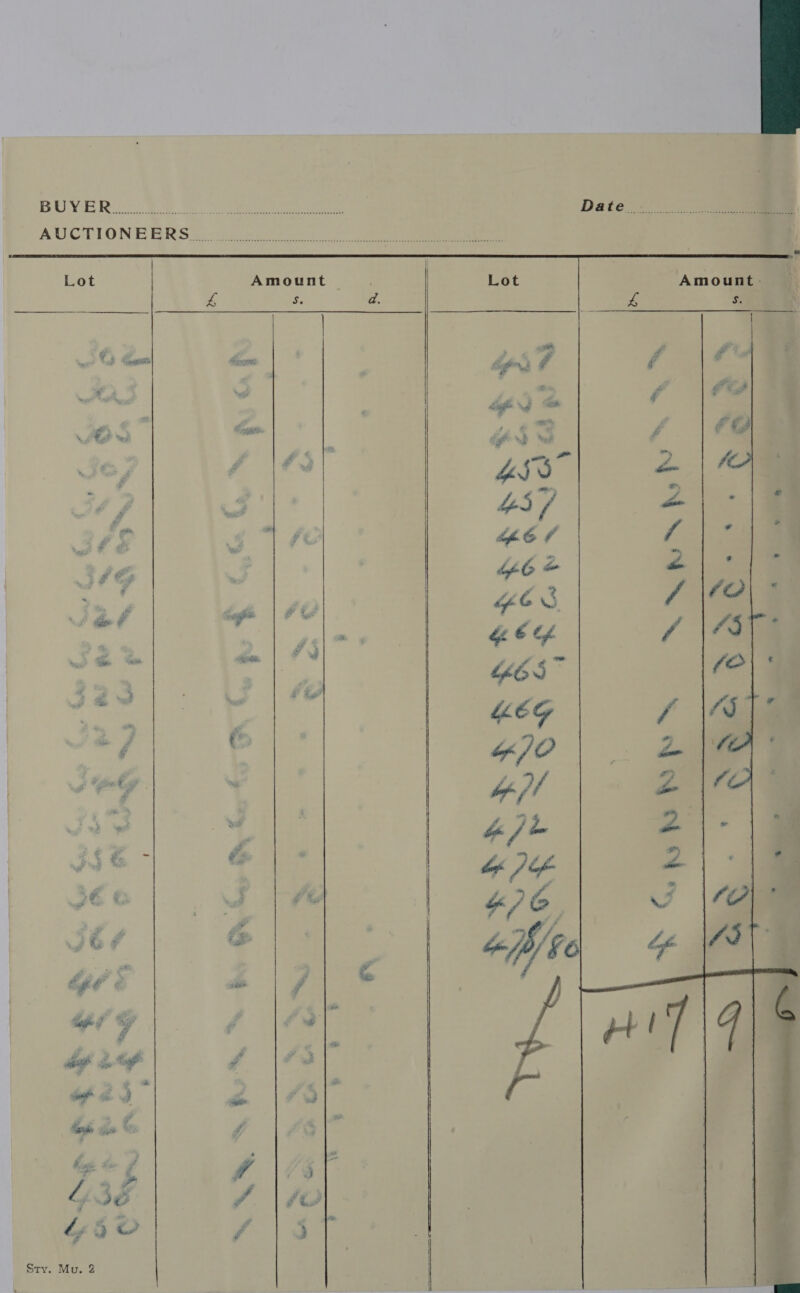 BUYER Date
AUCTIONEERS
Lot Amount Lot Amount
£ s. d. £ s.
302 2 . .
303 3 . .
305 2 . .
307 1 15
317 3 . .
318 3 10
319 3
321 4 10
322 2 15
323 3 10
327 6 .
349
353
356 6 .
360 3 10
361 6 .
418 2 7 6
419 1 15
424 1 15
425 2 15
426 1 15
427 1 15
438 1 10
450 1 5
1 10
452 1 10
453 1 10
455 2 10
457 2 . .
461 1 . .
462 2 . .
463 1 10 .
464 1 15 .
465 10 .
469 1 15 .
470 2 10 .
471 2 10 .
472 2 . .
474 2 . .
476 3 10 .
4 15
£ 117 9 6
Sty. Mu. 2